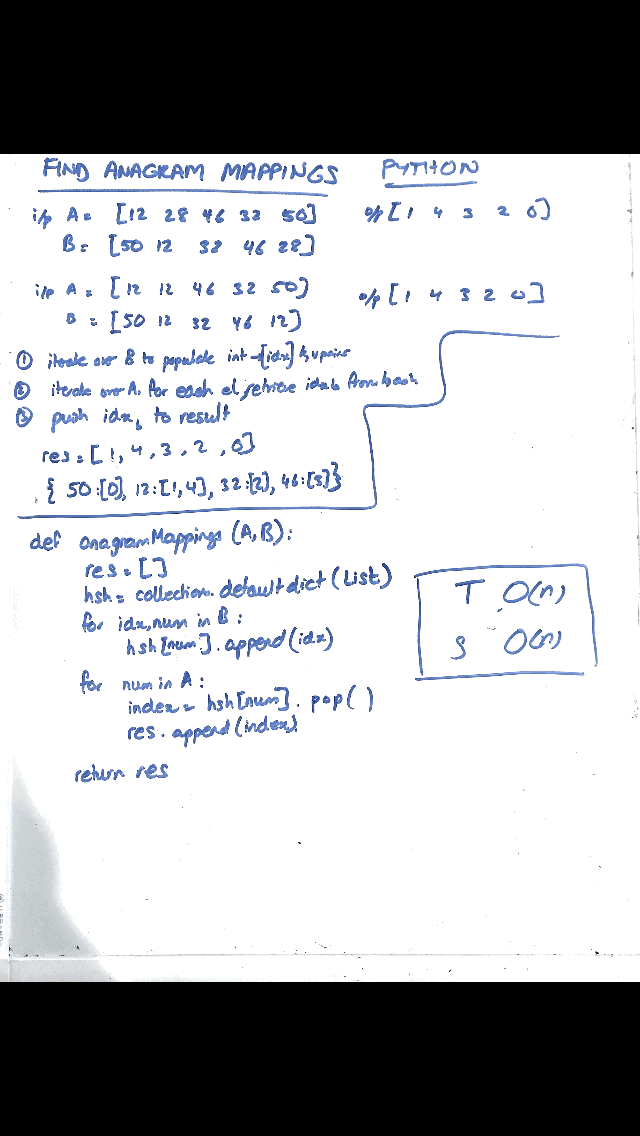 FIND ANAGRAM MAPPINGS PYTHON
i/p A = [12 28 46 32 50] o/p [1 4 3 2 0]
B = [50 12 32 46 28]
i/p A = [12 12 46 32 50] o/p [1 4 3 2 0]
B = [50 12 32 46 12]
① iterate over B to populate int→[idx] k,v pairs
② iterate over A, for each el, retrieve idxb from hash
③ push idxb to result
res = [1, 4, 3, 2, 0]
{ 50:[0], 12:[1,4], 32:[2], 46:[3]}
def anagramMappings (A,B):
res = []
hsh = collection. defaultdict (List)
for idx, num in B :
hsh[num]. append(idx)
for num in A :
index = hsh[num]. pop( )
res. append(index)
return res
T O(n)
S O(n)